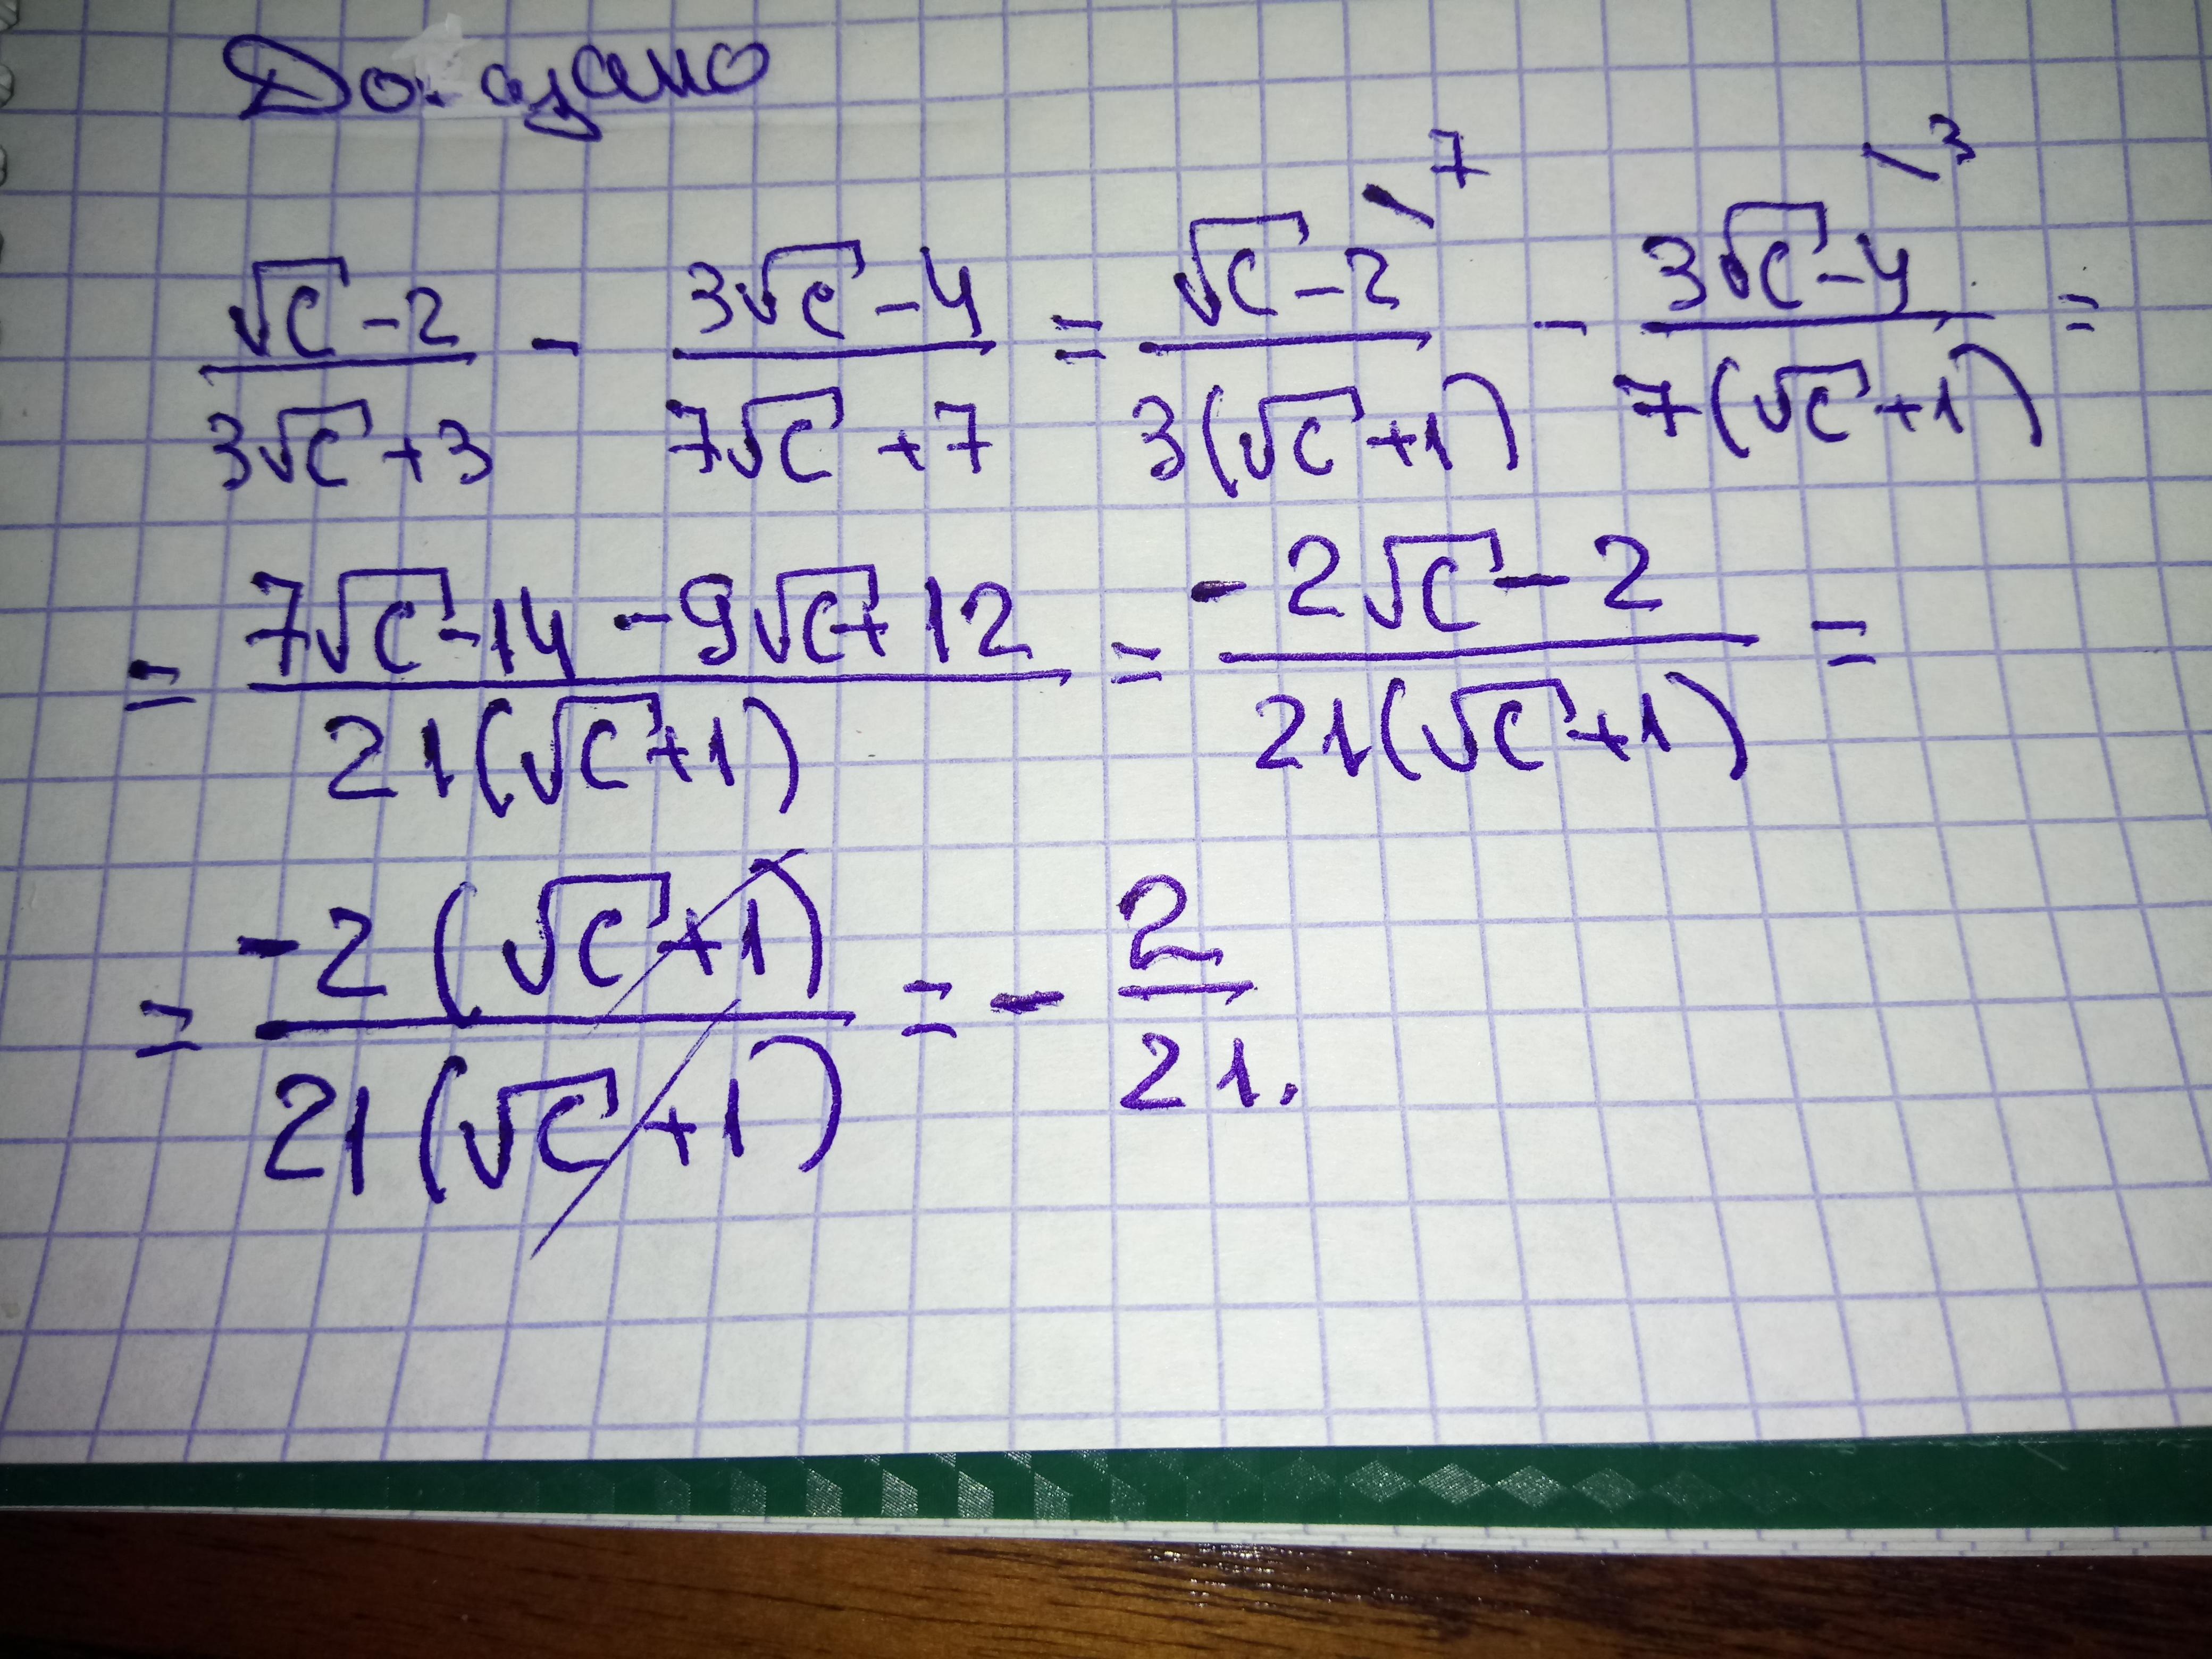 Доказано
(√c - 2)/(3√c + 3) - (3√c - 4)/(7√c + 7) = (√c - 2)/(3(√c + 1)) \7 - (3√c - 4)/(7(√c + 1)) \3 =
= (7√c - 14 - 9√c + 12)/(21(√c + 1)) = (-2√c - 2)/(21(√c + 1)) =
= (-2(√c + 1))/(21(√c + 1)) = - 2/21.